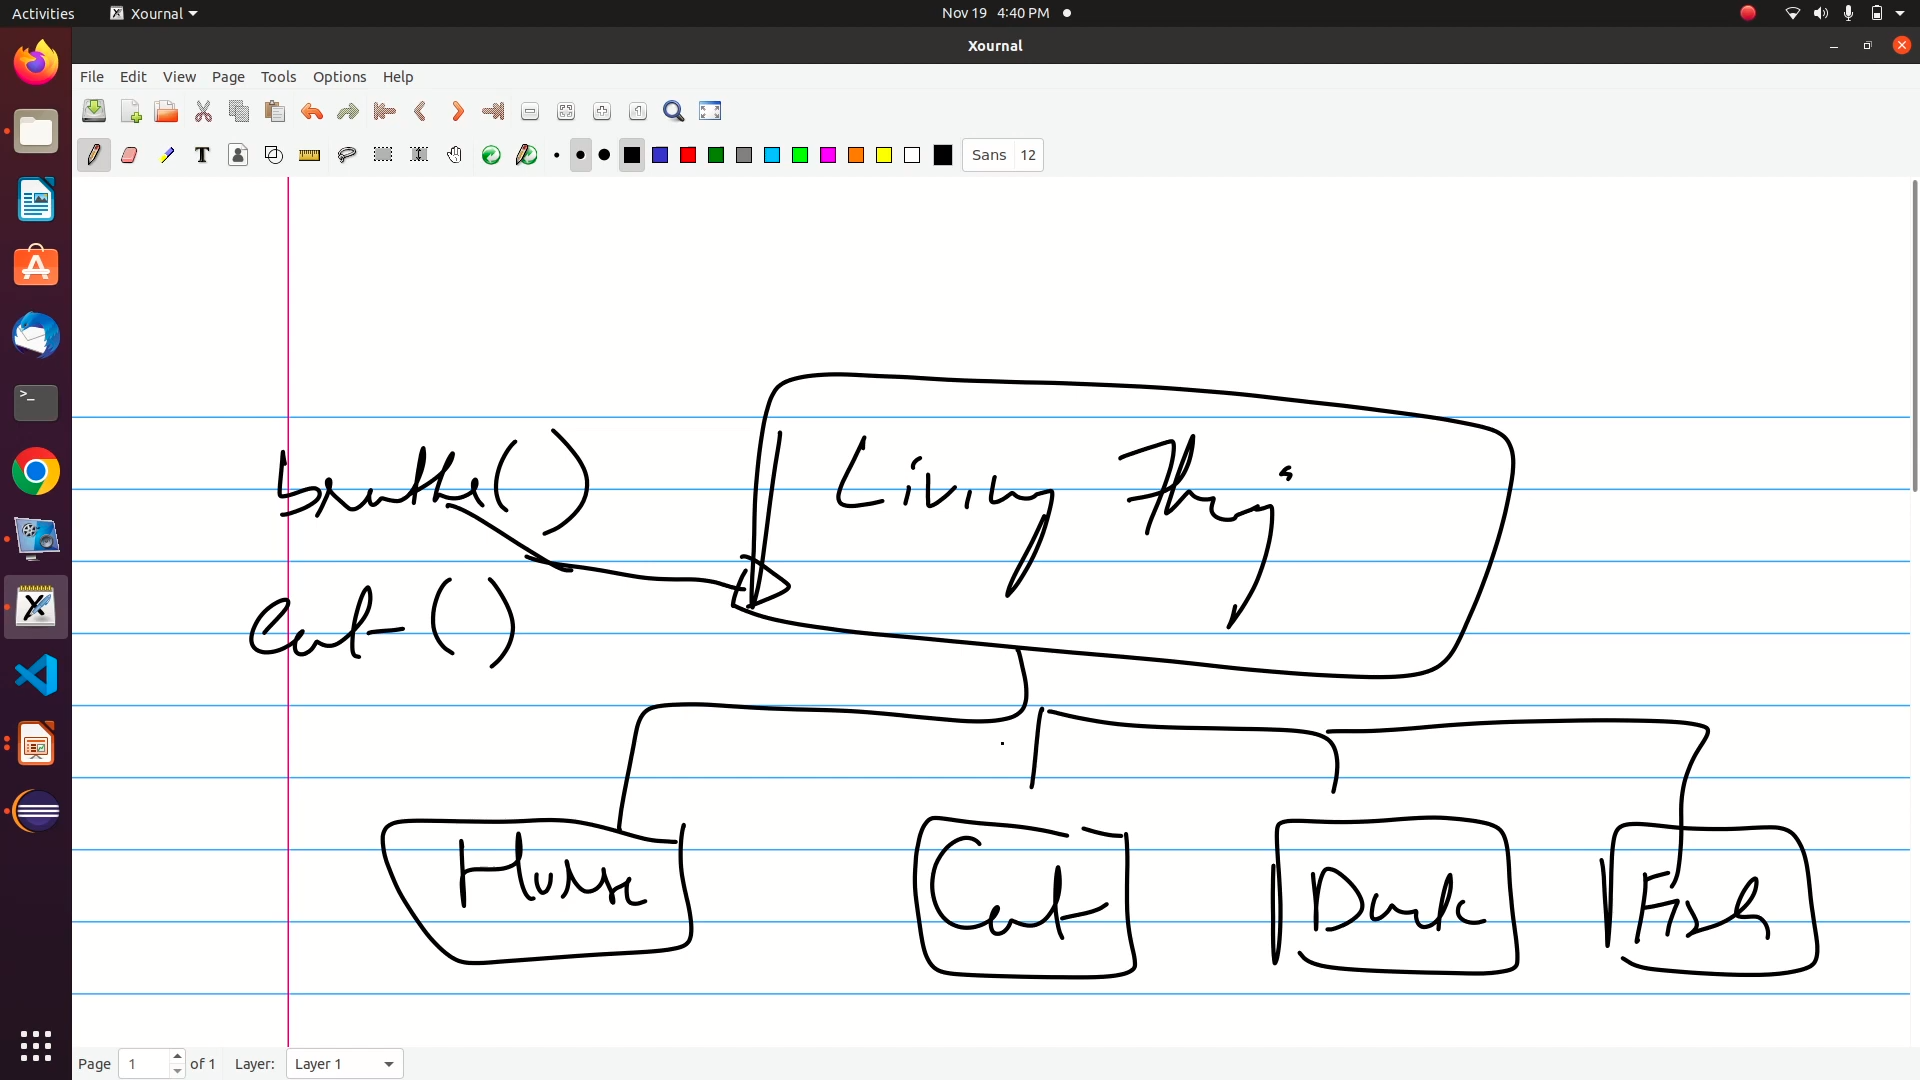 Activities Xournal Nov 19 4:40 PM
Xournal
File Edit View Page Tools Options Help
Sans 12
breathe() Living Things
Eat()
Horse Cat Duck Fish
Page 1 of 1 Layer: Layer 1